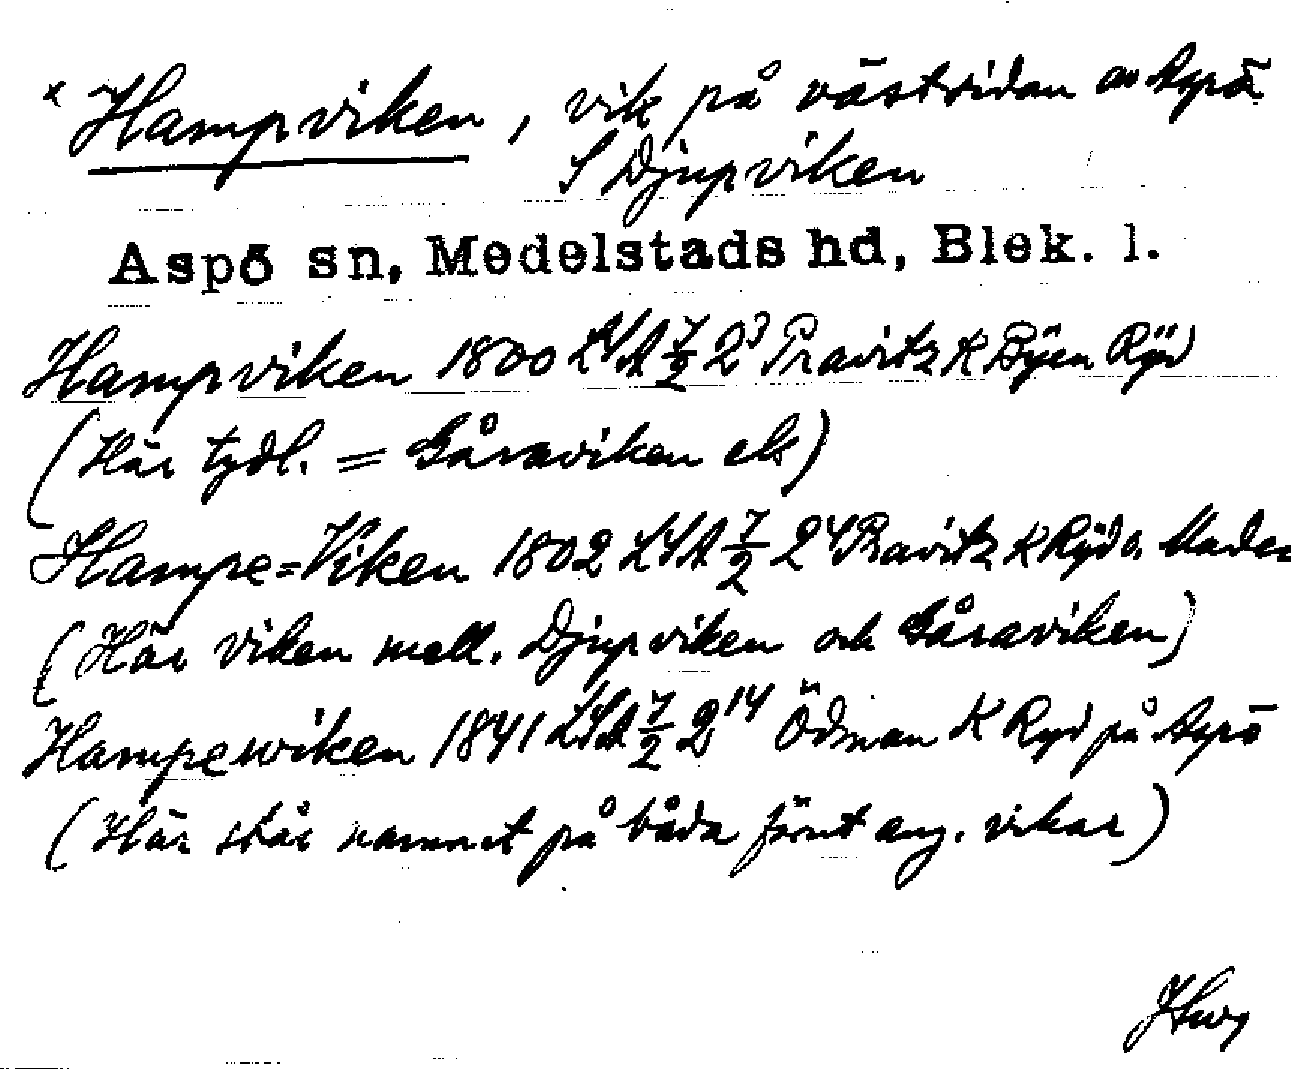 x Hampviken, vik på västsidan av Aspö
S Djupviken
Aspö sn, Medelstads hd, Blek. l.
Hampviken 1800 LSA 7/2 2³ Pravitz K Byen Ryd
(Här tydl. = Gåsaviken ek)
Hampe=Viken 1802 LSA 7/2 2⁴ Pravitz K Ryd o. Maden
(Här viken mell. Djupviken och Gåsaviken)
Hampewiken 1841 LSA 7/2 2¹⁴ Ödman K Ryd på Aspö
(Här står namnet på båda förut ang. vikar)